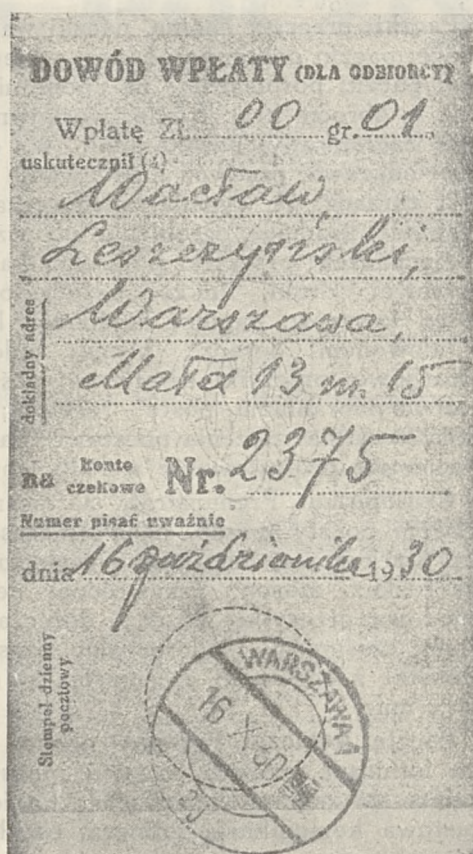 DOWÓD WPŁATY (DLA ODBIORCY)
Wpłatę Zł. 00 gr. 01
uskutecznił (a)
Wacław
Leszczyński,
Warszawa,
Mała 13 m. 15
dokładny adres
na konto czekowe Nr. 2375
Numer pisać uważnie
dnia 16 października 1930
Stempel dzienny
pocztowy
WARSZAWA 1
16 X 30